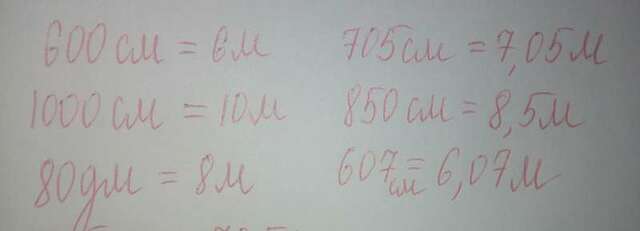 600 см = 6 м
1000 см = 10 м
80 дм = 8 м
705 см = 7,05 м
850 см = 8,5 м
607 см = 6,07 м